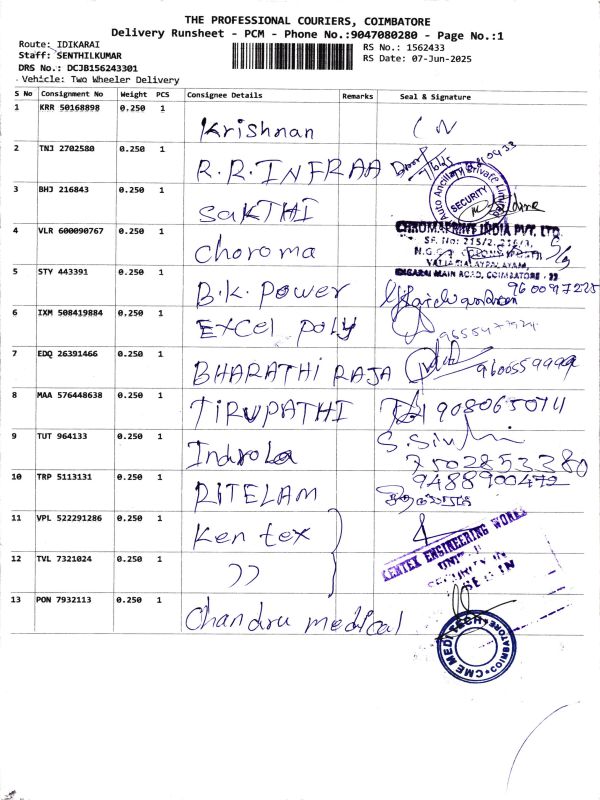 THE PROFESSIONAL COURIERS, COIMBATORE
Delivery Runsheet - PCM - Phone No.:9047080280 - Page No.:1
Route: IDIKARAI
RS No.: 1562433
Staff: SENTHILKUMAR
RS Date: 07-Jun-2025
DRS No.: DCJB156243301
Vehicle: Two Wheeler Delivery
S No Consignment No Weight PCS Consignee Details Remarks Seal & Signature
1 KRR 50168898 0.250 1 Krishnan
2 TNJ 2702580 0.250 1 R.R.INFRAA
3 BHJ 216843 0.250 1 SAKTHI
Auto Ancillary Private Limited
SECURITY
4 VLR 600090767 0.250 1 Choroma
CHROMAPRINT INDIA PVT. LTD.
SF. No: 215/2, 216/3,
IDIGARAI MAIN ROAD, COIMBATORE - 22
5 STY 443391 0.250 1 B.K. Power 9600917225
6 IXM 508419884 0.250 1 EXCel poly
7 EDQ 26391466 0.250 1 BHARATHI RAJA 9600559999
8 MAA 576448638 0.250 1 TIRUPATHI
9 TUT 964133 0.250 1 Indrola
7502853380
10 TRP 5113131 0.250 1 RITELAM 9488900472
11 VPL 522291286 0.250 1 Ken tex
KENTEX ENGINEERING WORKS
UNIT II
SECURITY IN
12 TVL 7321024 0.250 1 ))
13 PON 7932113 0.250 1 Chandru medical
CME MEDI TECH
COIMBATORE